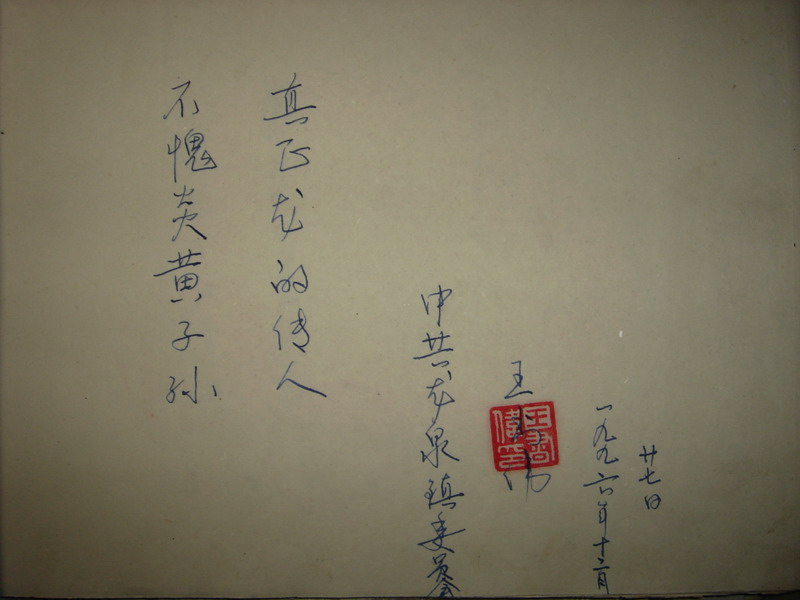 不愧炎黄子孙
真正龙的传人
中共龙泉镇委员会
王 伟
一九九六年十二月
廿七日